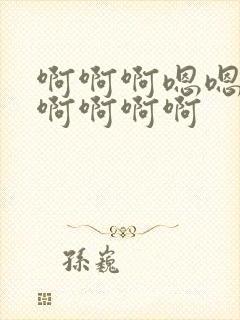 啊啊啊嗯嗯
啊啊啊啊
孫巍